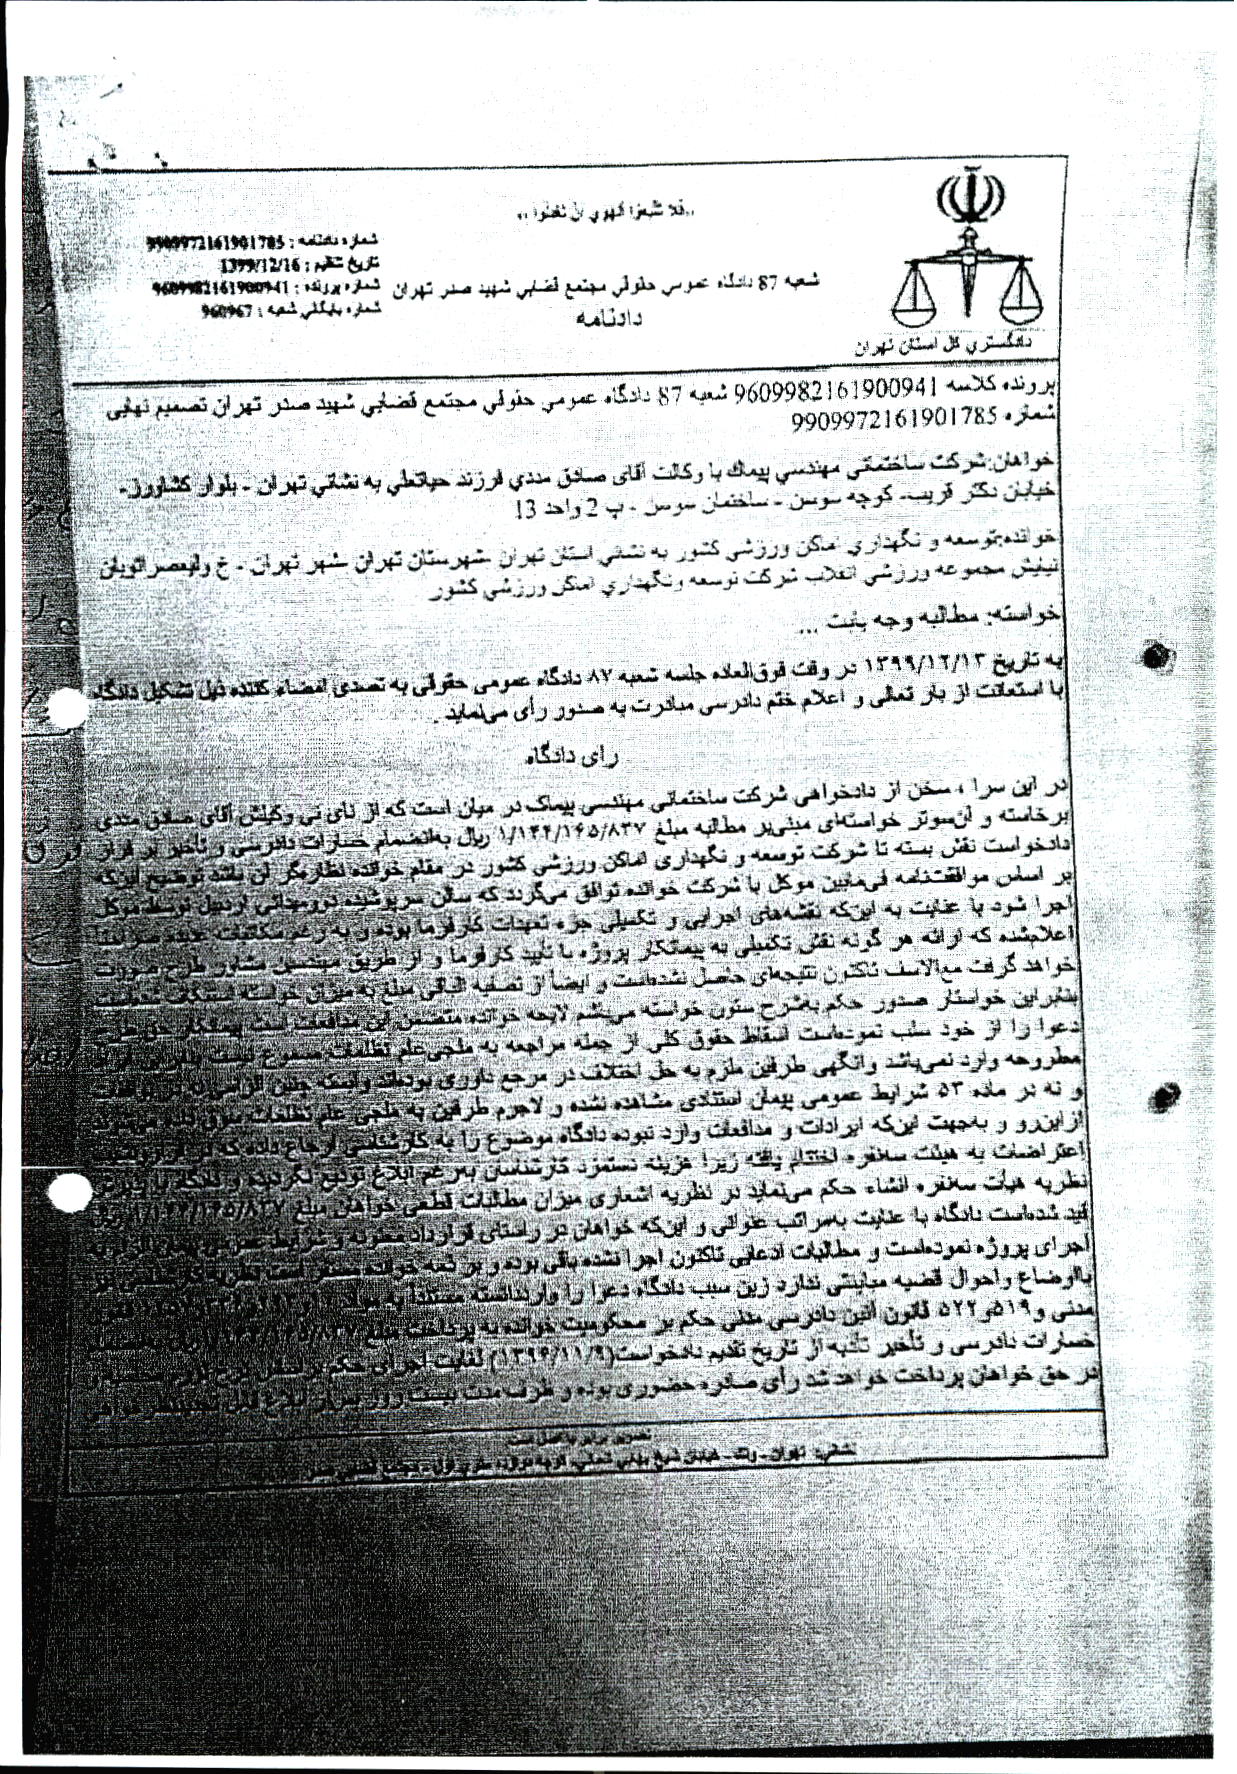 ,,فلا تتبعوا الهوي ان تعدلوا ,,
شماره دادنامه : 9909972161901785
تاريخ تنظيم : 1399/12/16
شماره پرونده : 9609982161900941
شماره بايگاني شعبه : 960967
شعبه 87 دادگاه عمومي حقوقي مجتمع قضايي شهيد صدر تهران
دادنامه
دادگستري كل استان تهران
پرونده كلاسه 9609982161900941 شعبه 87 دادگاه عمومي حقوقي مجتمع قضايي شهيد صدر تهران تصميم نهايي
شماره 9909972161901785
خواهان:شركت ساختماني مهندسي پيماك با وكالت آقاي صادق مددي فرزند حياتعلي به نشاني تهران - بلوار كشاورز-
خيابان دكتر قريب- كوچه سوسن - ساختمان سوسن - پ 2 واحد 13
خوانده:توسعه و نگهداري اماكن ورزشي كشور به نشاني استان تهران -شهرستان تهران -شهر تهران - خ وليعصراتوبان
نيايش مجموعه ورزشي انقلاب شركت توسعه ونگهداري اماكن ورزشي كشور
خواسته: مطالبه وجه بابت ...
به تاریخ ۱۳۹۹/۱۲/۱۳ در وقت فوق‌العاده جلسه شعبه ۸۷ دادگاه عمومی حقوقی به تصدی امضاء کننده ذیل تشکیل دادگاه
با استعانت از بار تعالی و اعلام ختم دادرسی مبادرت به صدور رأی می‌نماید .
رای دادگاه
در این سرا ، سخن از دادخواهی شرکت ساختمانی مهندسی پیماک در میان است که از نای نی وکیلش آقای صادق مددی
برخاسته و آن‌سوتر خواسته‌ای مبنی‌بر مطالبه مبلغ ۱/۱۴۴/۱۶۵/۸۳۷ ریال به‌انضمام خسارات دادرسی و تأخیر بر قرار
دادخواست نقش بسته تا شرکت توسعه و نگهداری اماکن ورزشی کشور در مقام خوانده نظاره‌گر آن باشد توضیح این‌که
بر اساس موافقت‌نامه فی‌مابین موکل با شرکت خوانده توافق می‌گردد که سالن سرپوشیده دوومیدانی اردبیل توسط موکل
اجرا شود با عنایت به این‌که نقشه‌های اجرایی و تکمیلی جزء تعهدات کارفرما بوده و به رغم مکاتبات عدیده صراحتا
اعلام‌شده که ارائه هر گونه نقش تکمیلی به پیمانکار پروژه با تأیید کارفرما و از طریق مهندسین مشاور طرح صورت
خواهد گرفت مع‌الاسف تاکنون نتیجه‌ای حاصل نشده‌است و ایضاً از تصفیه الباقی مبلغ به میزان خواسته استنکاف شده‌است
بنابراین خواستار صدور حکم به‌شرح ستون خواسته می‌باشم لایحه خوانده متضمن این مدافعات است پیمانکار حق طرح
دعوا را از خود سلب نموده‌است اسقاط حقوق کلی از جمله مراجعه به ملجی‌عام تظلمات مسموع نیست
مطروحه وارد نمی‌باشد وانگهی طرفین ملزم به حل اختلاف در مرجع داوری بوده‌اند
و نه در ماده ۵۳ شرایط عمومی پیمان استنادی مشاهده نشده و لاجرم طرفین به ملجی عام تظلمات سوق داده می‌شوند
ازاین‌رو و به‌جهت این‌که ایرادات و مدافعات وارد نبوده دادگاه موضوع را به کارشناسی ارجاع داده که
اعتراضات به هیئت سه‌نفره اختتام یافته زیرا هزینه دستمزد کارشناسان به‌رغم ابلاغ تودیع نگردیده و دادگاه
نظریه هیأت سه‌نفره انشاء حکم می‌نماید در نظریه اشعاری میزان مطالبات قطعی خواهان مبلغ ۱/۱۴۴/۱۶۵/۸۳۷ ریال
قید شده‌است دادگاه با عنایت به‌مراتب عنوانی و این‌که خواهان در راستای قرارداد
اجرای پروژه نموده‌است و مطالبات ادعایی تاکنون اجرا نشده باقی بوده و بر ذمه خوانده مستقر است
بااوضاع واحوال قضیه مباینتی ندارد زین سبب دادگاه دعوا را وارددانسته مستنداً به مواد
مدنی و۵۱۹و۵۲۲ قانون آئین دادرسی مدنی حکم بر محکومیت خوانده به پرداخت مبلغ ۱/۱۴۴/۱۶۵/۸۳۷ ریال به‌انضمام
خسارات دادرسی و تأخیر تأدیه از تاریخ تقدیم دادخواست(۱۳۹۶/۱۱/۹) لغایت اجرای حکم
در حق خواهان پرداخت خواهد شد رأی صادره حضوری بوده و ظرف مدت بیست روز پس‌از ابلاغ قابل تجدیدنظر خواهی
تصوير برابر با اصل است
نشاني: تهران - ونك - خيابان شيخ بهايي شمالي